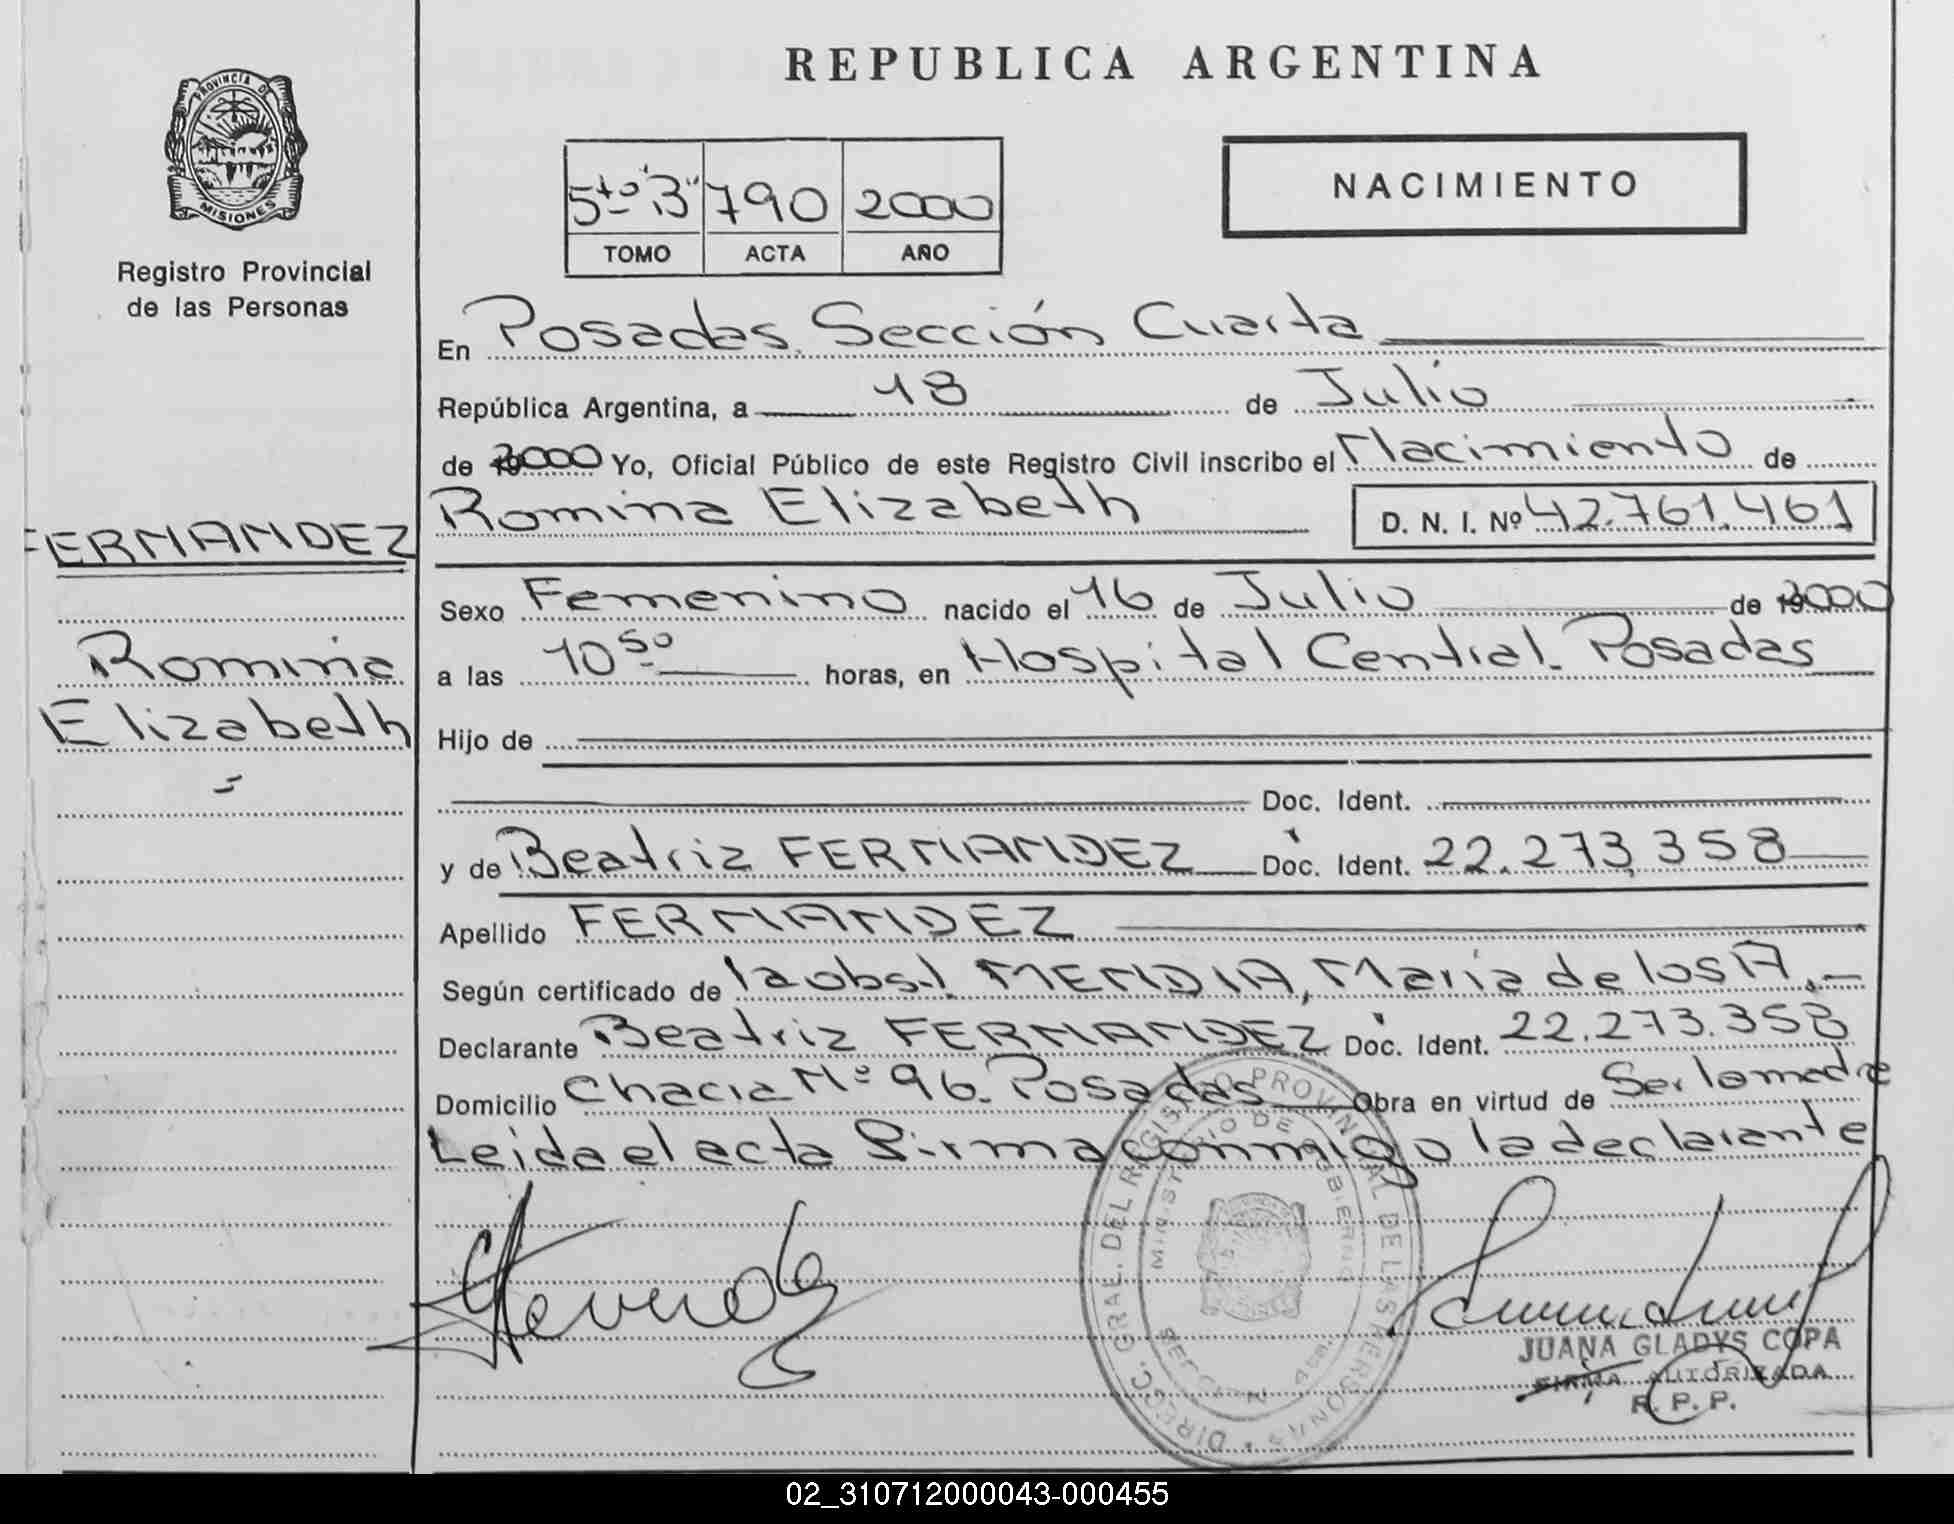 PROVINCIA DE
MISIONES
Registro Provincial
de las Personas
FERNANDEZ
Romina
Elizabeth
REPUBLICA ARGENTINA
5to "B" 790 2000
TOMO ACTA AÑO
NACIMIENTO
En Posadas. Sección Cuarta
República Argentina, a 18 de Julio
de 2000 Yo, Oficial Público de este Registro Civil inscribo el Nacimiento de
Romina Elizabeth D. N. I. Nº 42.761.461
Sexo Femenino nacido el 16 de Julio de 2000
a las 10 50 horas, en Hospital Central. Posadas
Hijo de
Doc. Ident.
y de Beatriz FERNANDEZ Doc. Ident. 22.273.358
Apellido FERNANDEZ
Según certificado de la obst. MENDIA, Maria de los A.
Declarante Beatriz FERNANDEZ Doc. Ident. 22.273.358
Domicilio Chacra Nº 96. Posadas Obra en virtud de Ser la madre
Leida el acta firma conmigo la declarante
DIRECC. GRAL. DEL REGISTRO PROVINCIAL DE LAS PERSONAS
MINISTERIO DE GOBIERNO
JUANA GLADYS COPA
FIRMA AUTORIZADA
R. P. P.
02_310712000043-000455